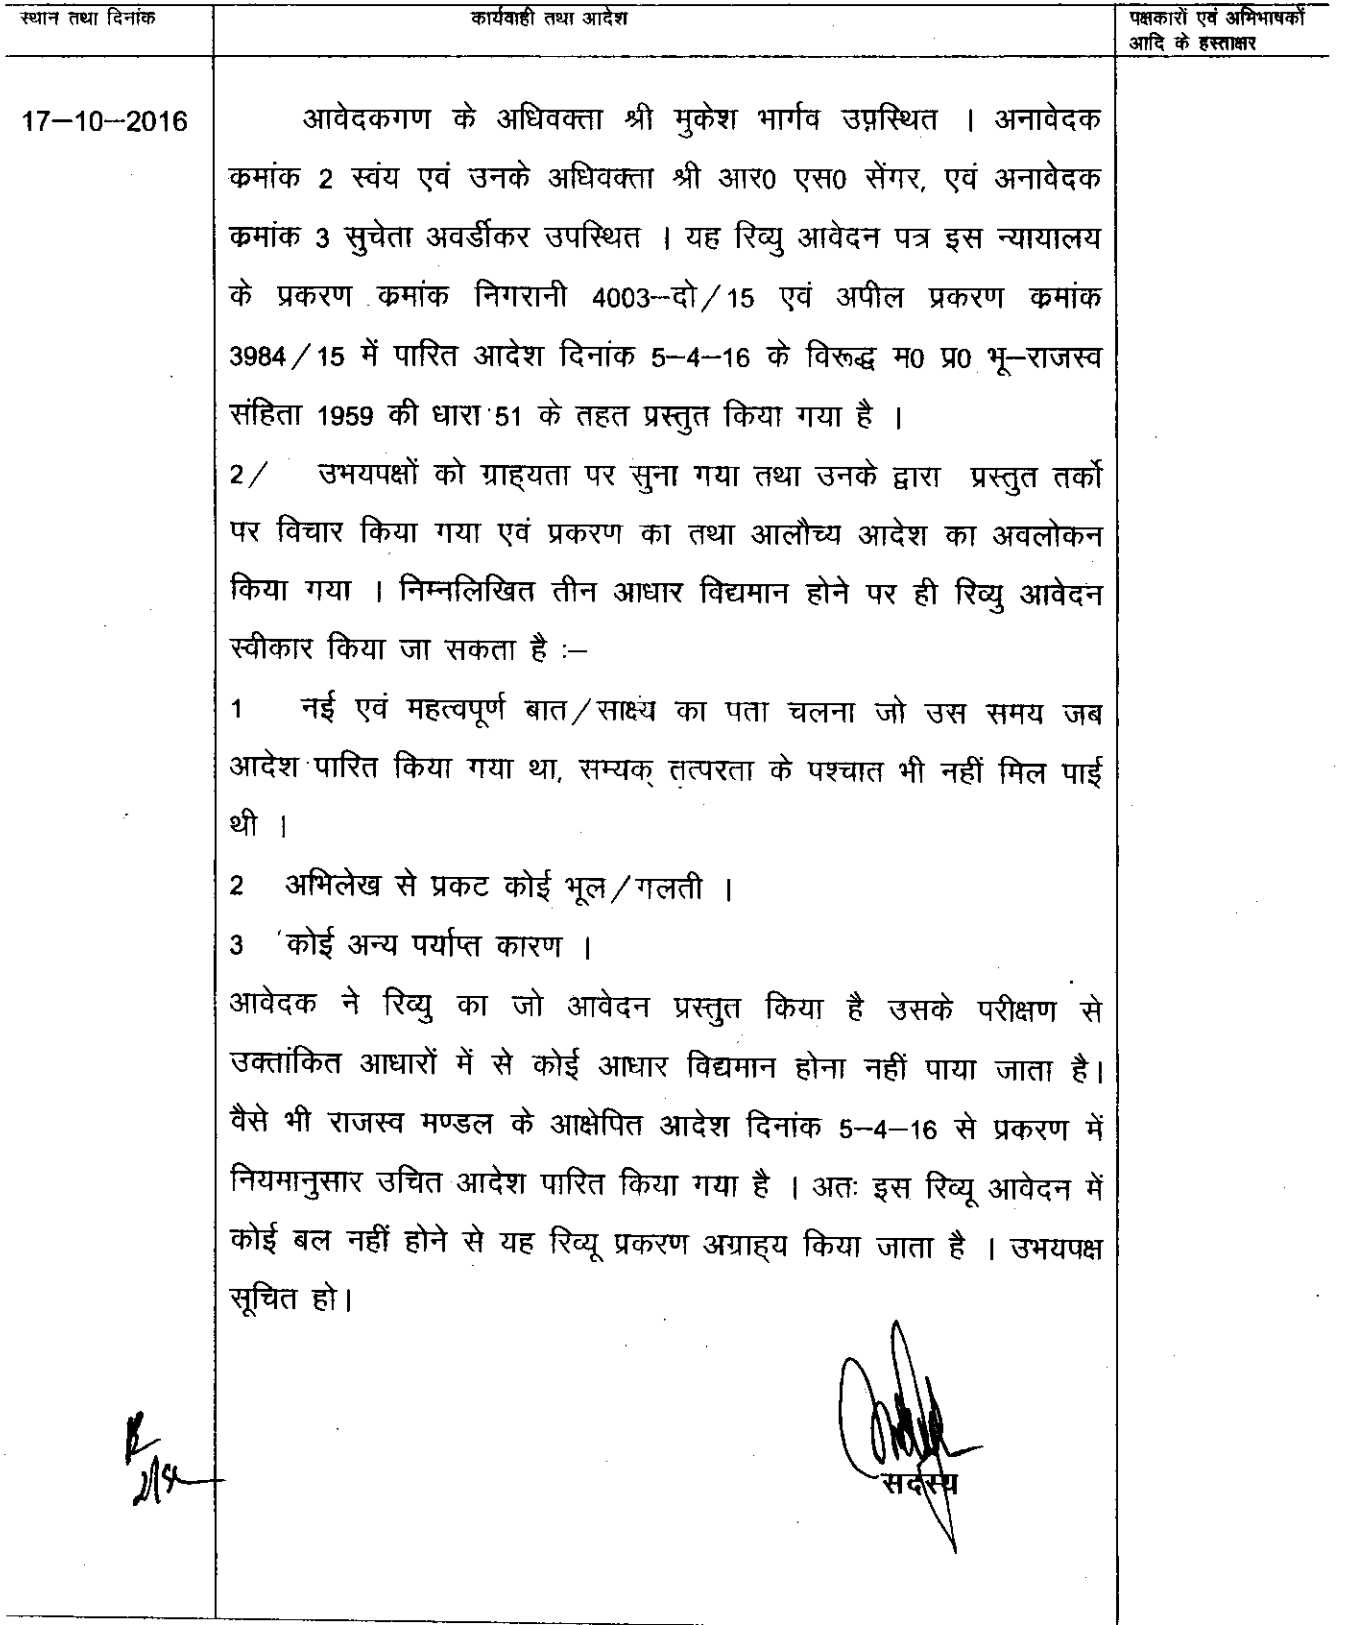 स्थान तथा दिनांक
कार्यवाही तथा आदेश
पक्षकारों एवं अभिभाषकों
आदि के हस्ताक्षर
17-10-2016
आवेदकगण के अधिवक्ता श्री मुकेश भार्गव उपस्थित । अनावेदक
कमांक 2 स्वंय एवं उनके अधिवक्ता श्री आर0 एस0 सेंगर, एवं अनावेदक
कमांक 3 सुचेता अवर्डीकर उपस्थित । यह रिव्यु आवेदन पत्र इस न्यायालय
के प्रकरण कमांक निगरानी 4003-दो/15 एवं अपील प्रकरण कमांक
3984/15 में पारित आदेश दिनांक 5-4-16 के विरूद्ध म0 प्र0 भू-राजस्व
संहिता 1959 की धारा 51 के तहत प्रस्तुत किया गया है ।
2/ उभयपक्षों को ग्राह्यता पर सुना गया तथा उनके द्वारा प्रस्तुत तर्को
पर विचार किया गया एवं प्रकरण का तथा आलौच्य आदेश का अवलोकन
किया गया । निम्नलिखित तीन आधार विद्यमान होने पर ही रिव्यु आवेदन
स्वीकार किया जा सकता है :-
1 नई एवं महत्वपूर्ण बात/साक्ष्य का पता चलना जो उस समय जब
आदेश पारित किया गया था, सम्यक् तत्परता के पश्चात भी नहीं मिल पाई
थी ।
2 अभिलेख से प्रकट कोई भूल/गलती ।
3 कोई अन्य पर्याप्त कारण ।
आवेदक ने रिव्यु का जो आवेदन प्रस्तुत किया है उसके परीक्षण से
उक्तांकित आधारों में से कोई आधार विद्यमान होना नहीं पाया जाता है।
वैसे भी राजस्व मण्डल के आक्षेपित आदेश दिनांक 5-4-16 से प्रकरण में
नियमानुसार उचित आदेश पारित किया गया है । अतः इस रिव्यू आवेदन में
कोई बल नहीं होने से यह रिव्यू प्रकरण अग्राह्य किया जाता है । उभयपक्ष
सूचित हो।
सदस्य